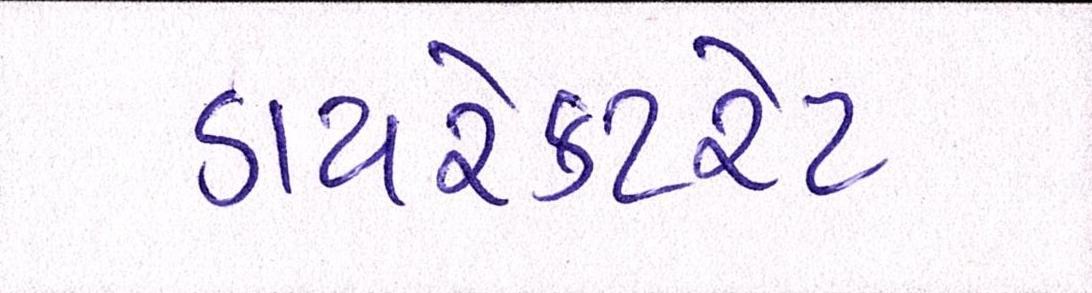 ડાયરેક્ટરેટ